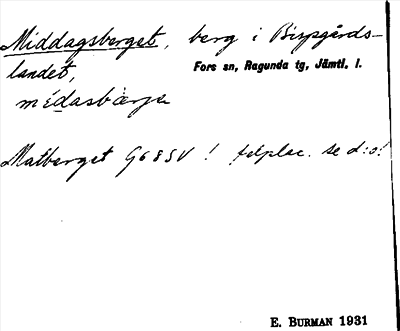 Middagsberget, berg i Bispgårds-
landet,
Fors sn, Ragunda tg, Jämtl. l.
médasbærje
Matberget G68SV! felplac. se d:o!
E. BURMAN 1931